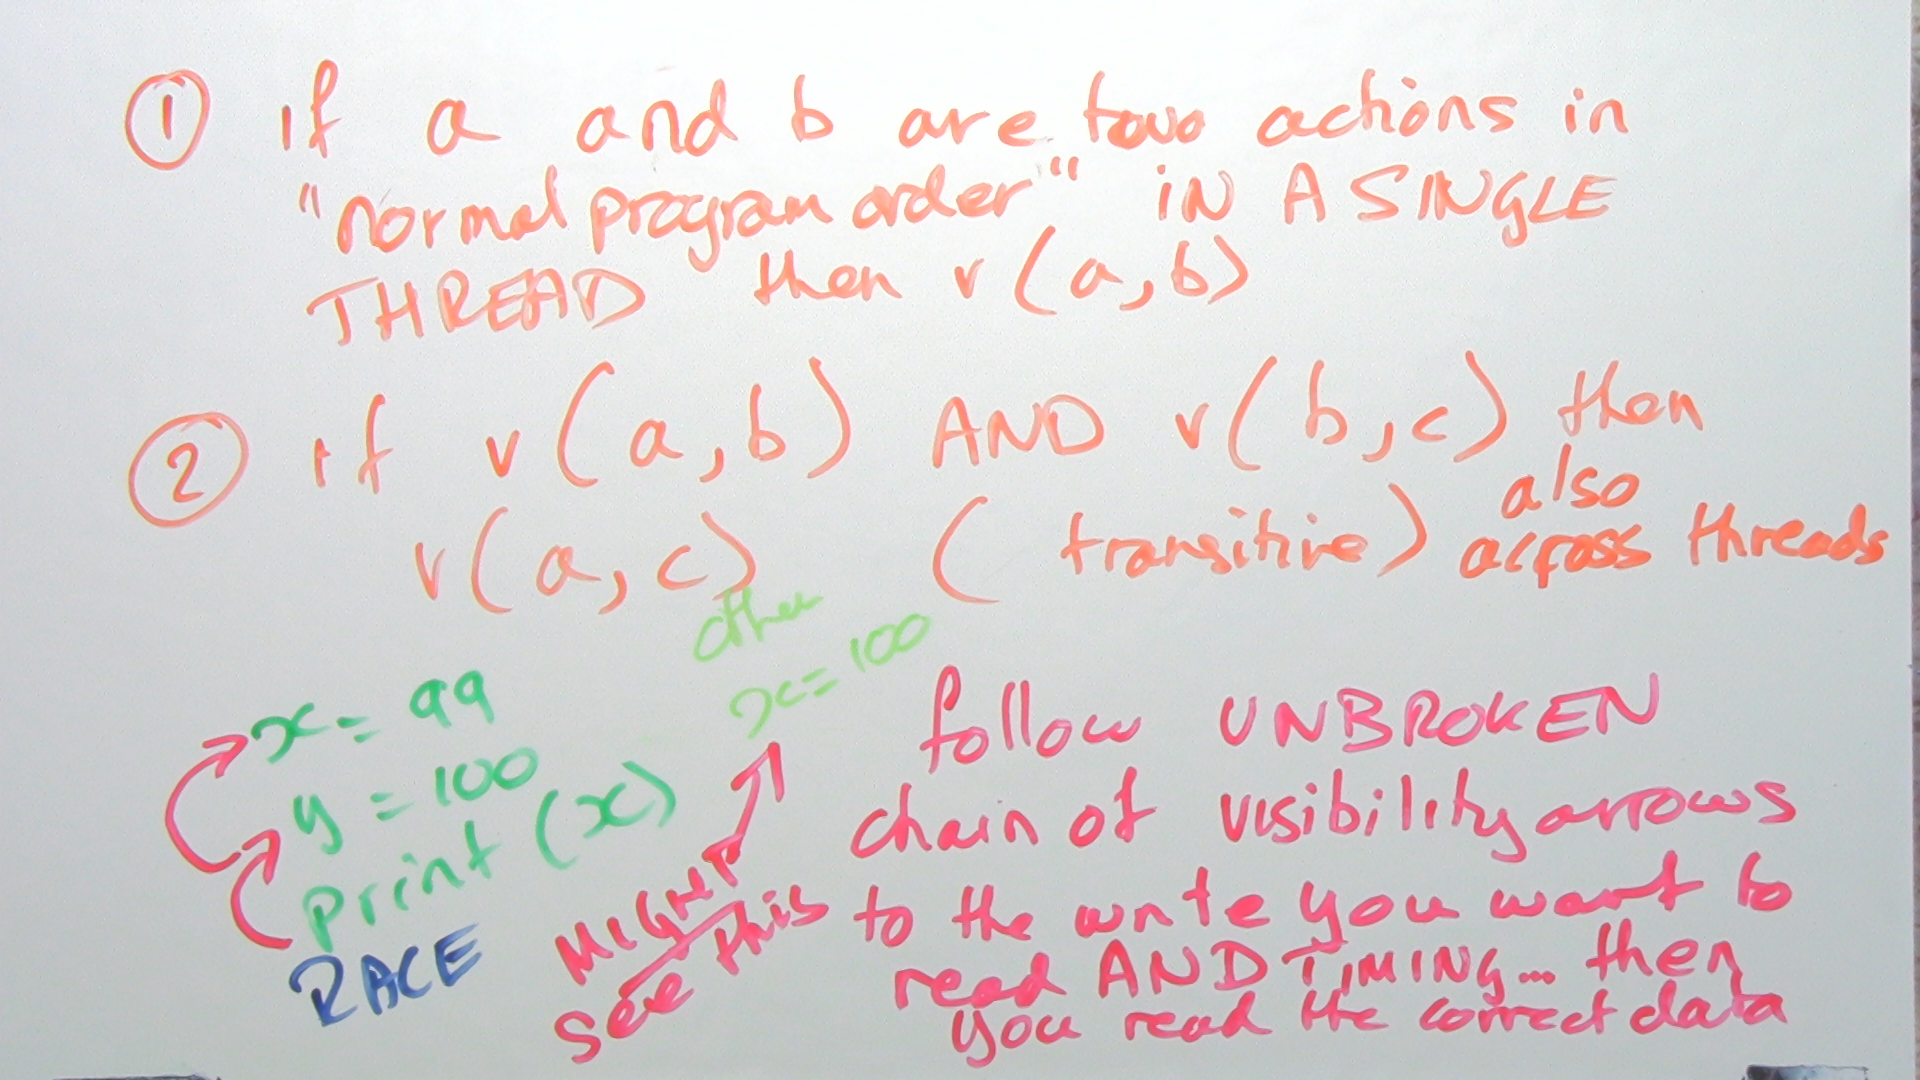 ① if a and b are two actions in
"normal program order" IN A SINGLE
THREAD then v(a,b)
② if v(a,b) AND v(b,c) then
v(a,c) (transitive) also
across threads
other
x=100
x=99
y=100
print(x)
RACE
MIGHT
see this
follow UNBROKEN
chain of visibility arrows
to the write you want to
read AND TIMING... then
you read the correct data